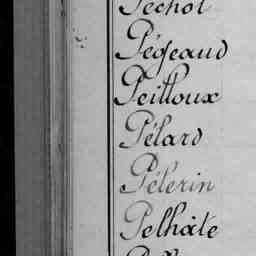 Péchot
Pégeaud
Peilloux
Pélard
Pélerin
Pelhâte